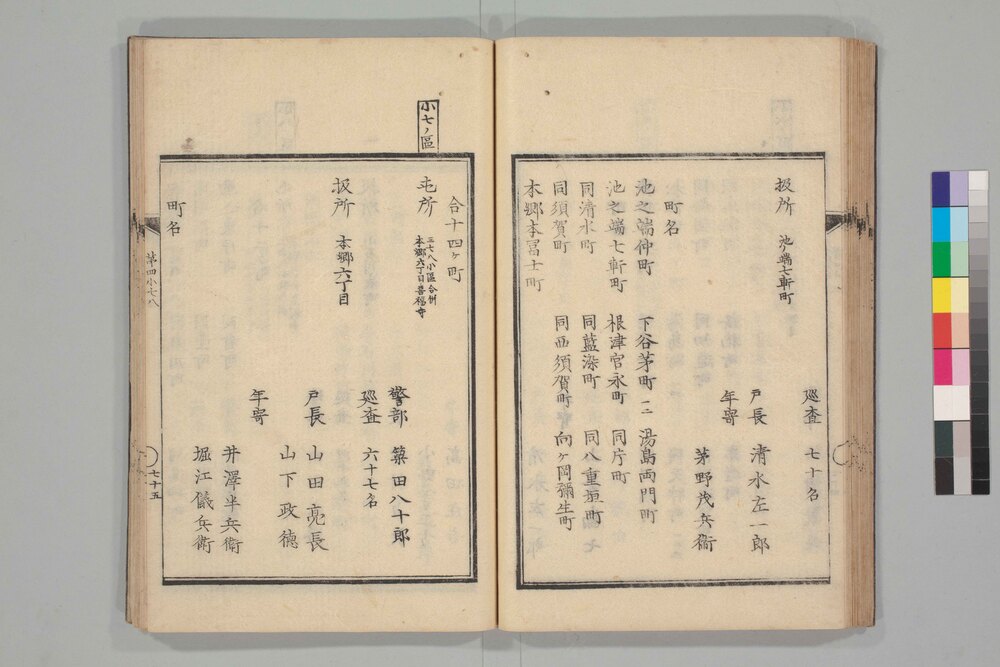 巡査 七十名
扱所 池ノ端七軒町
戸長 清水左一郎
年寄
茅野茂兵衛
町名
池之端仲町 下谷茅町一二 湯島両門町
池之端七軒町 根津宮永町 同片町
同清水町 同藍染町 同八重垣町
同須賀町 同西須賀町 向ヶ岡彌生町
本郷本冨士町
合十四ヶ町
小七ノ區
屯所 三七八小區合併 本郷六丁目喜福寺
警部 築田八十郎
巡査 六十七名
扱所 本郷六丁目
戸長 山田亮長
山下政徳
年寄
井澤半兵衛
堀江儀兵衛
町名
第四小七八
七十五